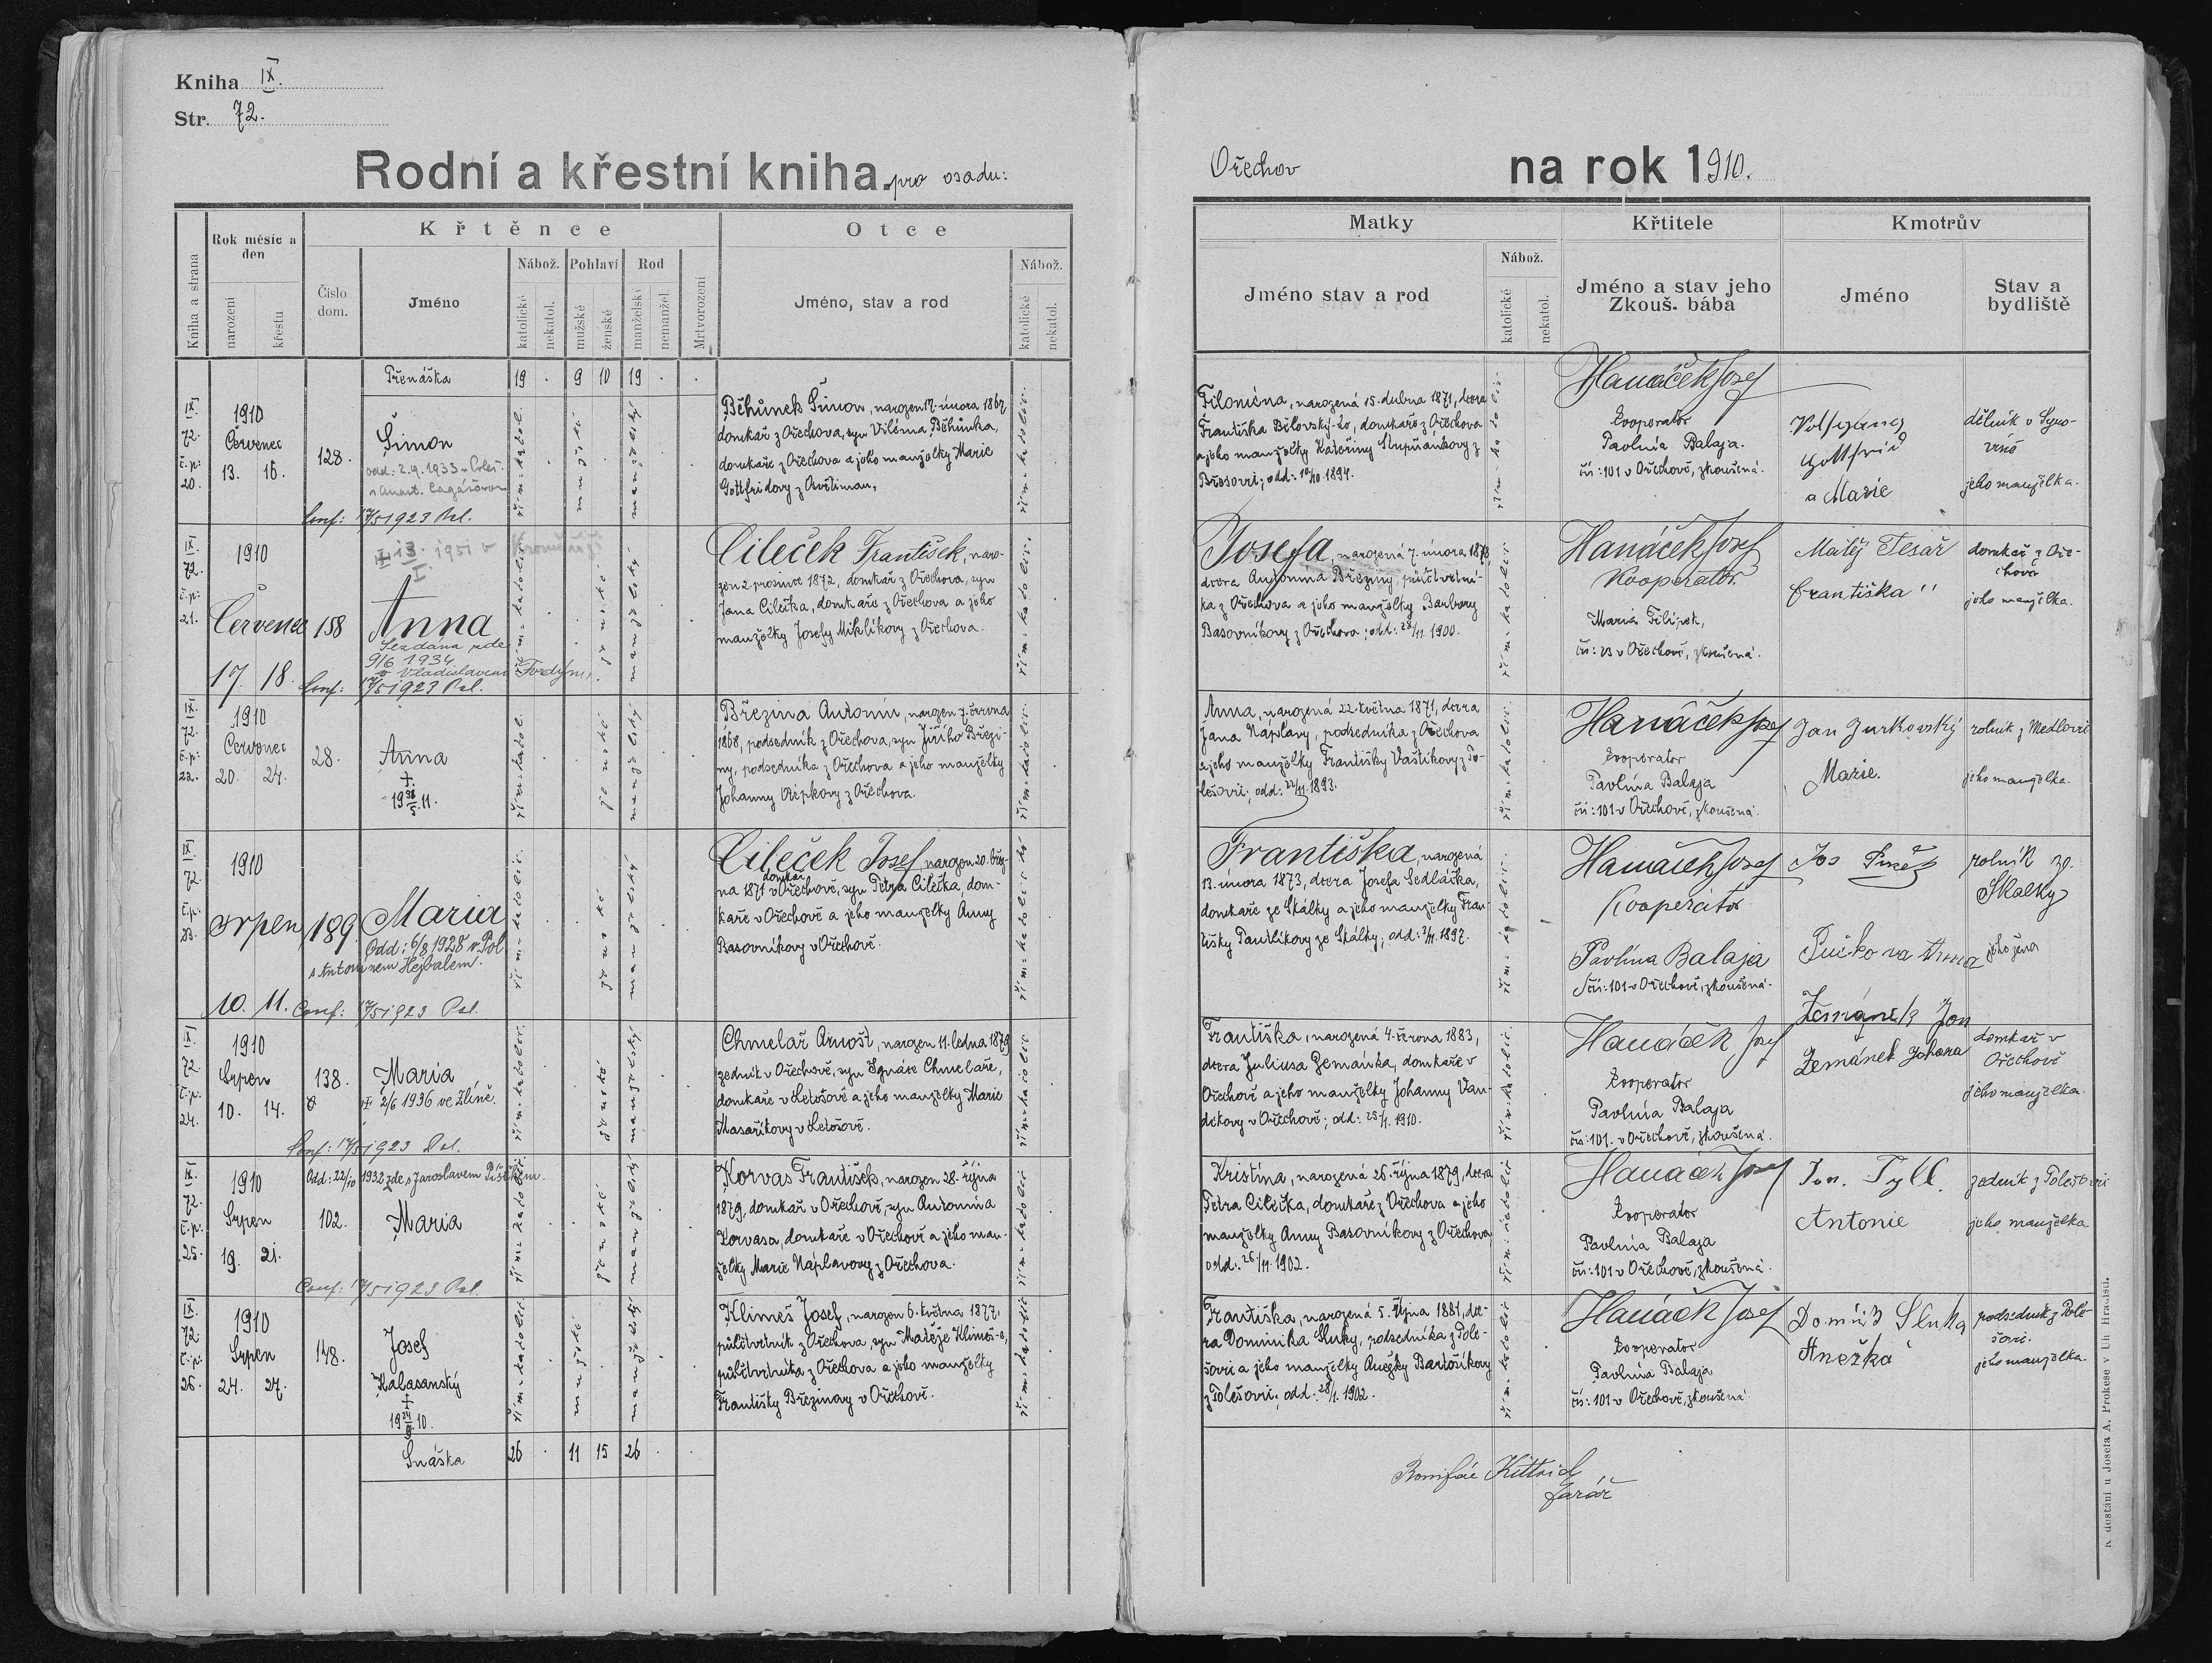 Kniha IX.
Str. 72.
Rodní a křestní kniha. pro osadu:
Kniha a strana
Rok měsíc a den
narození
křestu
Křtěnce
Číslo dom.
Jméno
Nábož.
katolické
nekatol.
Pohlaví
mužské
ženské
Rod
manželské
nemanžel.
Mrtvorození
Otce
Jméno, stav a rod
Nábož.
katolické
nekatol.
Přenáška 19 . 9 10 19 . .
IX.
72.
č.p:
20.
1910
Červenec
13. 16.
128.
Šimon
odd: 2.9.1933 v Poleš.
s Anast.
Conf: 17/5 1923 Pol.
řím. katol.
mužské
manželský
Běhůnek Šimon, narozen 17. února 1867
domkař z Ořechova, syn Viléma Běhůnka,
domkaře z Ořechova a jeho manželky Marie
Gottfridovy z
řím. katolic.
IX.
72.
č.p:
21.
1910
Červenec
17. 18.
158
1951 v Kroměříži
Anna
Sezdána zde
9/6 1934
s Vladislavem Fordým
Conf: 17/5 1923 Pol.
řím. katolic.
ženské
manželský
Cileček František, naro-
zen 2. prosince 1872, domkař z Ořechova, syn
Jana Cilečka, domkaře z Ořechova a jeho
manželky Josefy Miklíkovy z Ořechova.
řím. katolic.
IX.
72.
č.p:
22.
1910
Červenec
20. 24.
28.
Anna
†
řím. katol.
ženské
manželský
Březina Antonín, narozen 7. června
1868, podsedník z Ořechova, syn Jiřího Březi-
ny, podsedníka z Ořechova a jeho manželky
Johanny Řípkovy z Ořechova.
řím. katolic.
IX.
72.
č.p:
23.
1910
srpen
10. 11.
189.
Maria
Odd: 6/8 1928 v Pol
s Antonínem Hejbalem.
Conf: 17/5 1923 Pol.
řím. katolic.
ženské
manželský
Cileček Josef, narozen 20. břez-
domkař
na 1871 v Ořechově, syn Petra Cilečka, dom-
kaře v Ořechově a jeho manželky Anny
Basovníkovy v Ořechově.
řím. katolické
IX.
72.
č.p:
24.
1910
Srpen
10. 14.
138.
Maria
2/6 1936 ve Zlíně.
Conf: 17/5 1923 Pol.
řím. katolic.
ženské
manželský
Chmelař Arnošt, narozen 11. ledna 1879
zedník v Ořechově, syn Ignáce Chmelaře,
domkaře v Letošově a jeho manželky Marie
Masaříkovy v Letošově.
řím. katolic.
IX.
72.
č.p:
25.
1910
Srpen
19. 21.
Odd: 22/10 1932 zde s Jaroslavem
102.
Maria
Conf: 17/5 1923 Pol.
řím. katolic
ženské
manželský
Korvas František, narozen 28. října
1879, domkař v Ořechově, syn Antonína
Korvasa, domkaře v Ořechově a jeho man-
želky Marie Náplavovy z Ořechova.
řím. katolic
IX.
72.
č.p:
26.
1910
Srpen
24. 27.
148.
Josef
Kalasanský
†
řím. katolic.
mužské
manželský
Klimeš Josef, narozen 6. května 1877,
půlčtvrtník z Ořechova, syn Matěje Klimeš-e,
půlčtvrtníka z Ořechova a jeho manželky
Františky Březinovy v Ořechově.
řím. katolic
Snáška 26 . 11 15 26 . .
Ořechov
na rok 1910.
Matky
Jméno stav a rod
Nábož.
katolické
nekatol.
Křtitele
Jméno a stav jeho
Zkouš. bába
Kmotrův
Jméno
Stav a bydliště
Filoména, narozená 15. dubna 1871, dcera
Františka Bělovský-ho, domkaře z Ořechova
a jeho manželky Kateřiny z
Břestovci; odd: 10/10. 1894.
řím. katolic.
Hanáček Josef
kooperator
Pavlína Balaja.
čís: 101 v Ořechově, zkoušená.
Volfgang
Gottfrid
a Marie
dělník v Syro-
víně
jeho manželka.
Josefa, narozená 7. února 1878,
dcera Antonína Březiny, půlčtvrtní-
ka z Ořechova a jeho manželky Barbory
Basovníkovy z Ořechova; odd: 28/11. 1900.
řím. katolic.
Hanáček Josef
Kooperator.
Maria Filípek,
čís: 23 v Ořechově, zkoušená.
Matěj Tesař
Františka "
domkař z Oře-
chova
jeho manželka.
Anna, narozená 22. května 1871, dcera
Jana Náplavy, podsedníka z Ořechova
a jeho manželky Františky Vaštíkovy z Po-
lešovic; odd: 22/11. 1893.
řím. katolic.
Hanáček Josef
kooperator
Pavlína Balaja
čís: 101 v Ořechově, zkoušená.
Jan Jurkovský
Marie.
rolník z Medlovic
jeho manželka.
Františka, narozená
13. února 1873, dcera Josefa Sedláčka,
domkaře ze Skálky a jeho manželky Fran-
tišky Pantlíkovy ze Skálky; odd: 3/11. 1897.
řím. katolic.
Hanáček Josef
Kooperátor
Pavlína Balaja
čís: 101 v Ořechově, zkoušená.
Jos
Anna
rolník ze
Skalky
jeho žena
Františka, narozená 4. června 1883,
dcera Juliusa Zemánka, domkaře v
Ořechově a jeho manželky Johanny Van-
děkovy v Ořechově; odd: 25/1. 1910.
řím. katolic.
Hanáček Josef
kooperator
Pavlína Balaja
čís: 101. v Ořechově, zkoušená.
Zemánek Jan
Zemánek Johana
domkař v
Ořechově
jeho manželka.
Kristína, narozená 26. října 1879, dcera
Petra Cilečka, domkaře z Ořechova a jeho
manželky Anny Basovníkovy z Ořechova,
odd: 26/11. 1902.
řím. katolic
Hanáček Josef
kooperator
Pavlína Balaja
čís: 101 v Ořechově, zkoušená.
Jan. Tyll.
Antonie
zedník z Polešovic
jeho manželka
Františka, narozená 5. října 1881, dce-
ra Dominika Sluky, podsedníka z Pole-
šovic a jeho manželky Anežky Bartošíkovy
z Polešovic; odd: 28/1. 1902.
řím. katolic
Hanáček Josef
kooperator
Pavlína Balaja
čís: 101 v Ořechově, zkoušená
Domník Sluka
Anežka
podsedník z Pole-
šovic.
jeho manželka.
Bonifác Kittrich
farář
K dostání u Josefa A. Prokese v Uh. Hradišti.